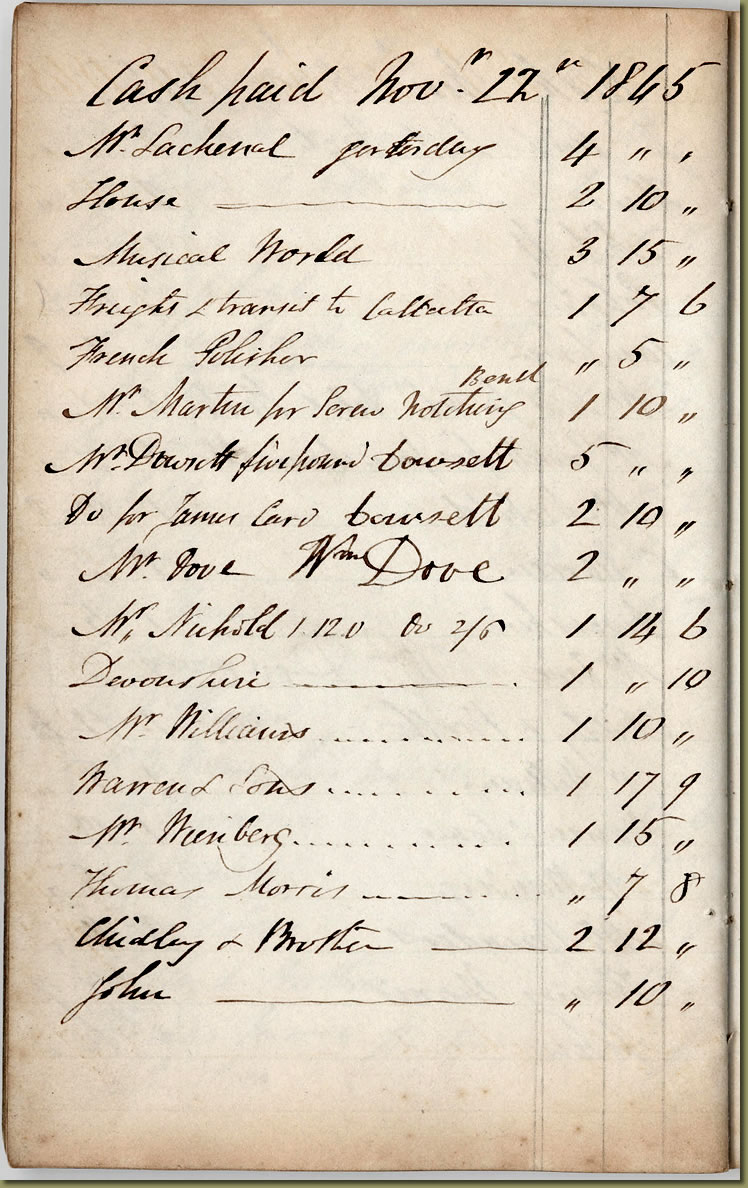 Cash paid Novr. 22n 1845
Mr. Lachenal yesterday 4 " "
House 2 10 "
Musical World 3 15 "
Freight & transit to Calcutta 1 7 6
French Polisher " 5 "
Bench
Mr. Martin for Screw Notching 1 10 "
Mr. Dowsett five pound Dowsett 5 " "
Do for James Card Dowsett 2 10 "
Mr. Dove Wm Dove 2 " "
Mr. Nickold 1.12.0 Do 2/6 1 14 6
Devonshire 1 " 10
Mr Williams 1 10 "
Warren & Sons 1 17 9
Mr. 1 15 "
Thomas Morris " 7 8
Chidley & Brother 2 12 "
John " 10 "